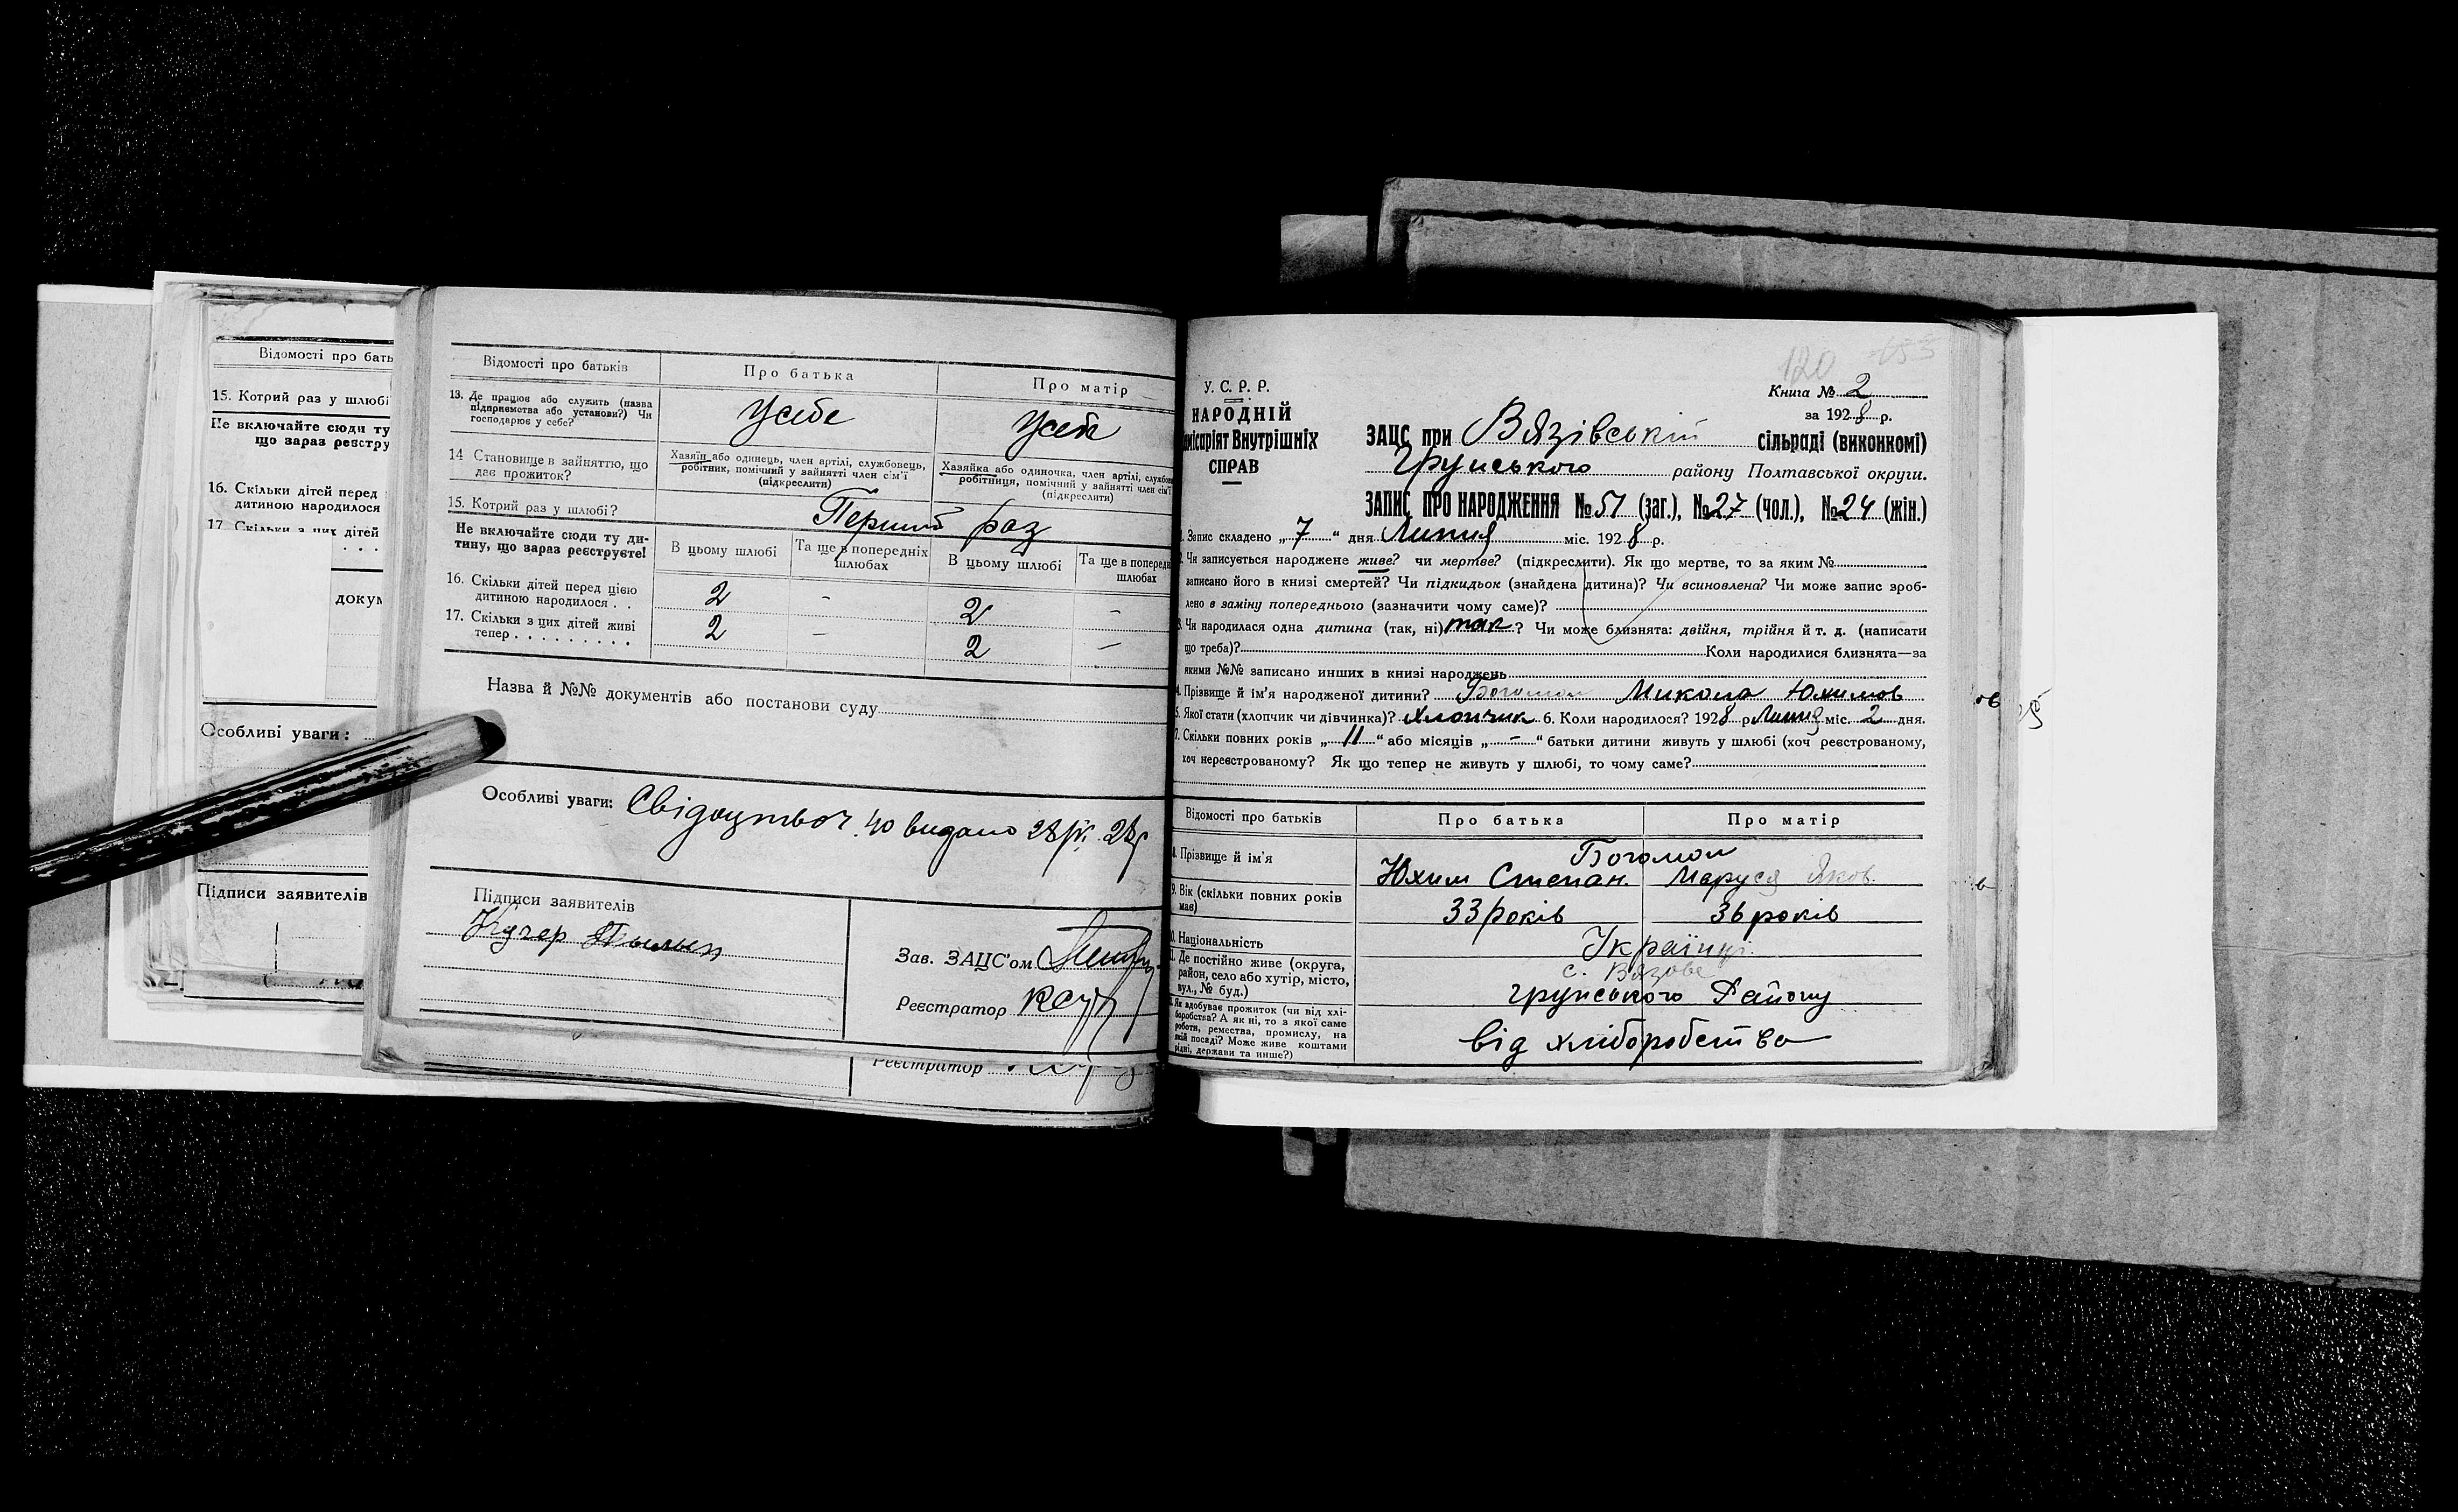 Відомості про бать
15. Котрий раз у шлюбі
Не включайте сюди ту
що зараз реєстру
16. Скільки дітей перед
дитиною народилося
17. Скільки з цих дітей
. . .
докум
Особливі уваги:
Підписи заявителів
Відомості про батьків Про батька Про матір
13. Де працює або служить (назва підприємства або установи?) Чи господарює у себе? У себе У себе
14 Становище в зайняттю, що дає прожиток? Хазяїн або одинець, член артілі, службовець, робітник, помічний у зайнятті член сім'ї (підкреслити) Хазяйка або одиночка, член артілі, службов робітниця, помічний у зайнятті член сім'ї (підкреслити)
15. Котрий раз у шлюбі? Перший раз
Не включайте сюди ту дитину, що зараз реєструєте! В цьому шлюбі Та ще в попередніх шлюбах В цьому шлюбі Та ще в поперед шлюбах
16. Скільки дітей перед цією дитиною народилося . . 2 - 2 -
17. Скільки з цих дітей живі тепер . . . . . . . . . 2 - 2 -
Назва й №№ документів або постанови суду
Особливі уваги: Свідоцтво ч. 40 видано 28/IV 28р
Підписи заявителів
Кучер
Зав. ЗАЦС'ом
Реєстратор
Реєстратор
120
У. С. Р. Р.
НАРОДНІЙ
місаріят Внутрішніх
СПРАВ
Книга № 2
за 1928 р.
ЗАЦС при Вязівській сільраді (виконкомі)
Грунського району Полтавської округи.
ЗАПИС ПРО НАРОДЖЕННЯ № 51 (заг.), № 27 (чол.), № 24 (жін.)
1. Запис складено „7“ дня Липня міс. 1928 р.
2. Чи записується народжене живе? чи мертве? (підкреслити). Як що мертве, то за яким №
записано його в книзі смертей? Чи підкидьок (знайдена дитина)? Чи всиновлена? Чи може запис зроб-
лено в заміну попереднього (зазначити чому саме)?
3. Чи народилася одна дитина (так, ні) так? Чи може близнята: двійня, трійня й т. д. (написати
що треба)? Коли народилися близнята—за
якими №№ записано инших в книзі народжень
4. Прізвище й ім'я народженої дитини? Богомол Микола Юхимов
5. Якої стати (хлопчик чи дівчинка)? Хлопчик 6. Коли народилося? 1928 р Липня міс. 2 дня.
7. Скільки повних років „11“ або місяців „-“ батьки дитини живуть у шлюбі (хоч реєстрованому,
хоч нереєстрованому? Як що тепер не живуть у шлюбі, то чому саме?
Відомості про батьків Про батька Про матір
8. Прізвище й ім'я Богомол
Юхим Степан. Маруся Яков.
9. Вік (скільки повних років має) 33 років 36 років
10. Національність Українці
11. Де постійно живе (округа, район, село або хутір, місто, вул., № буд.) с. Вязове
Грунського Району
Як здобуває прожиток (чи від хлі-
боробства? А як ні, то з якої саме
роботи, ремества, промислу, на
якій посаді? Може живе коштами
рідні, держави та инше?) від хліборобства
ов